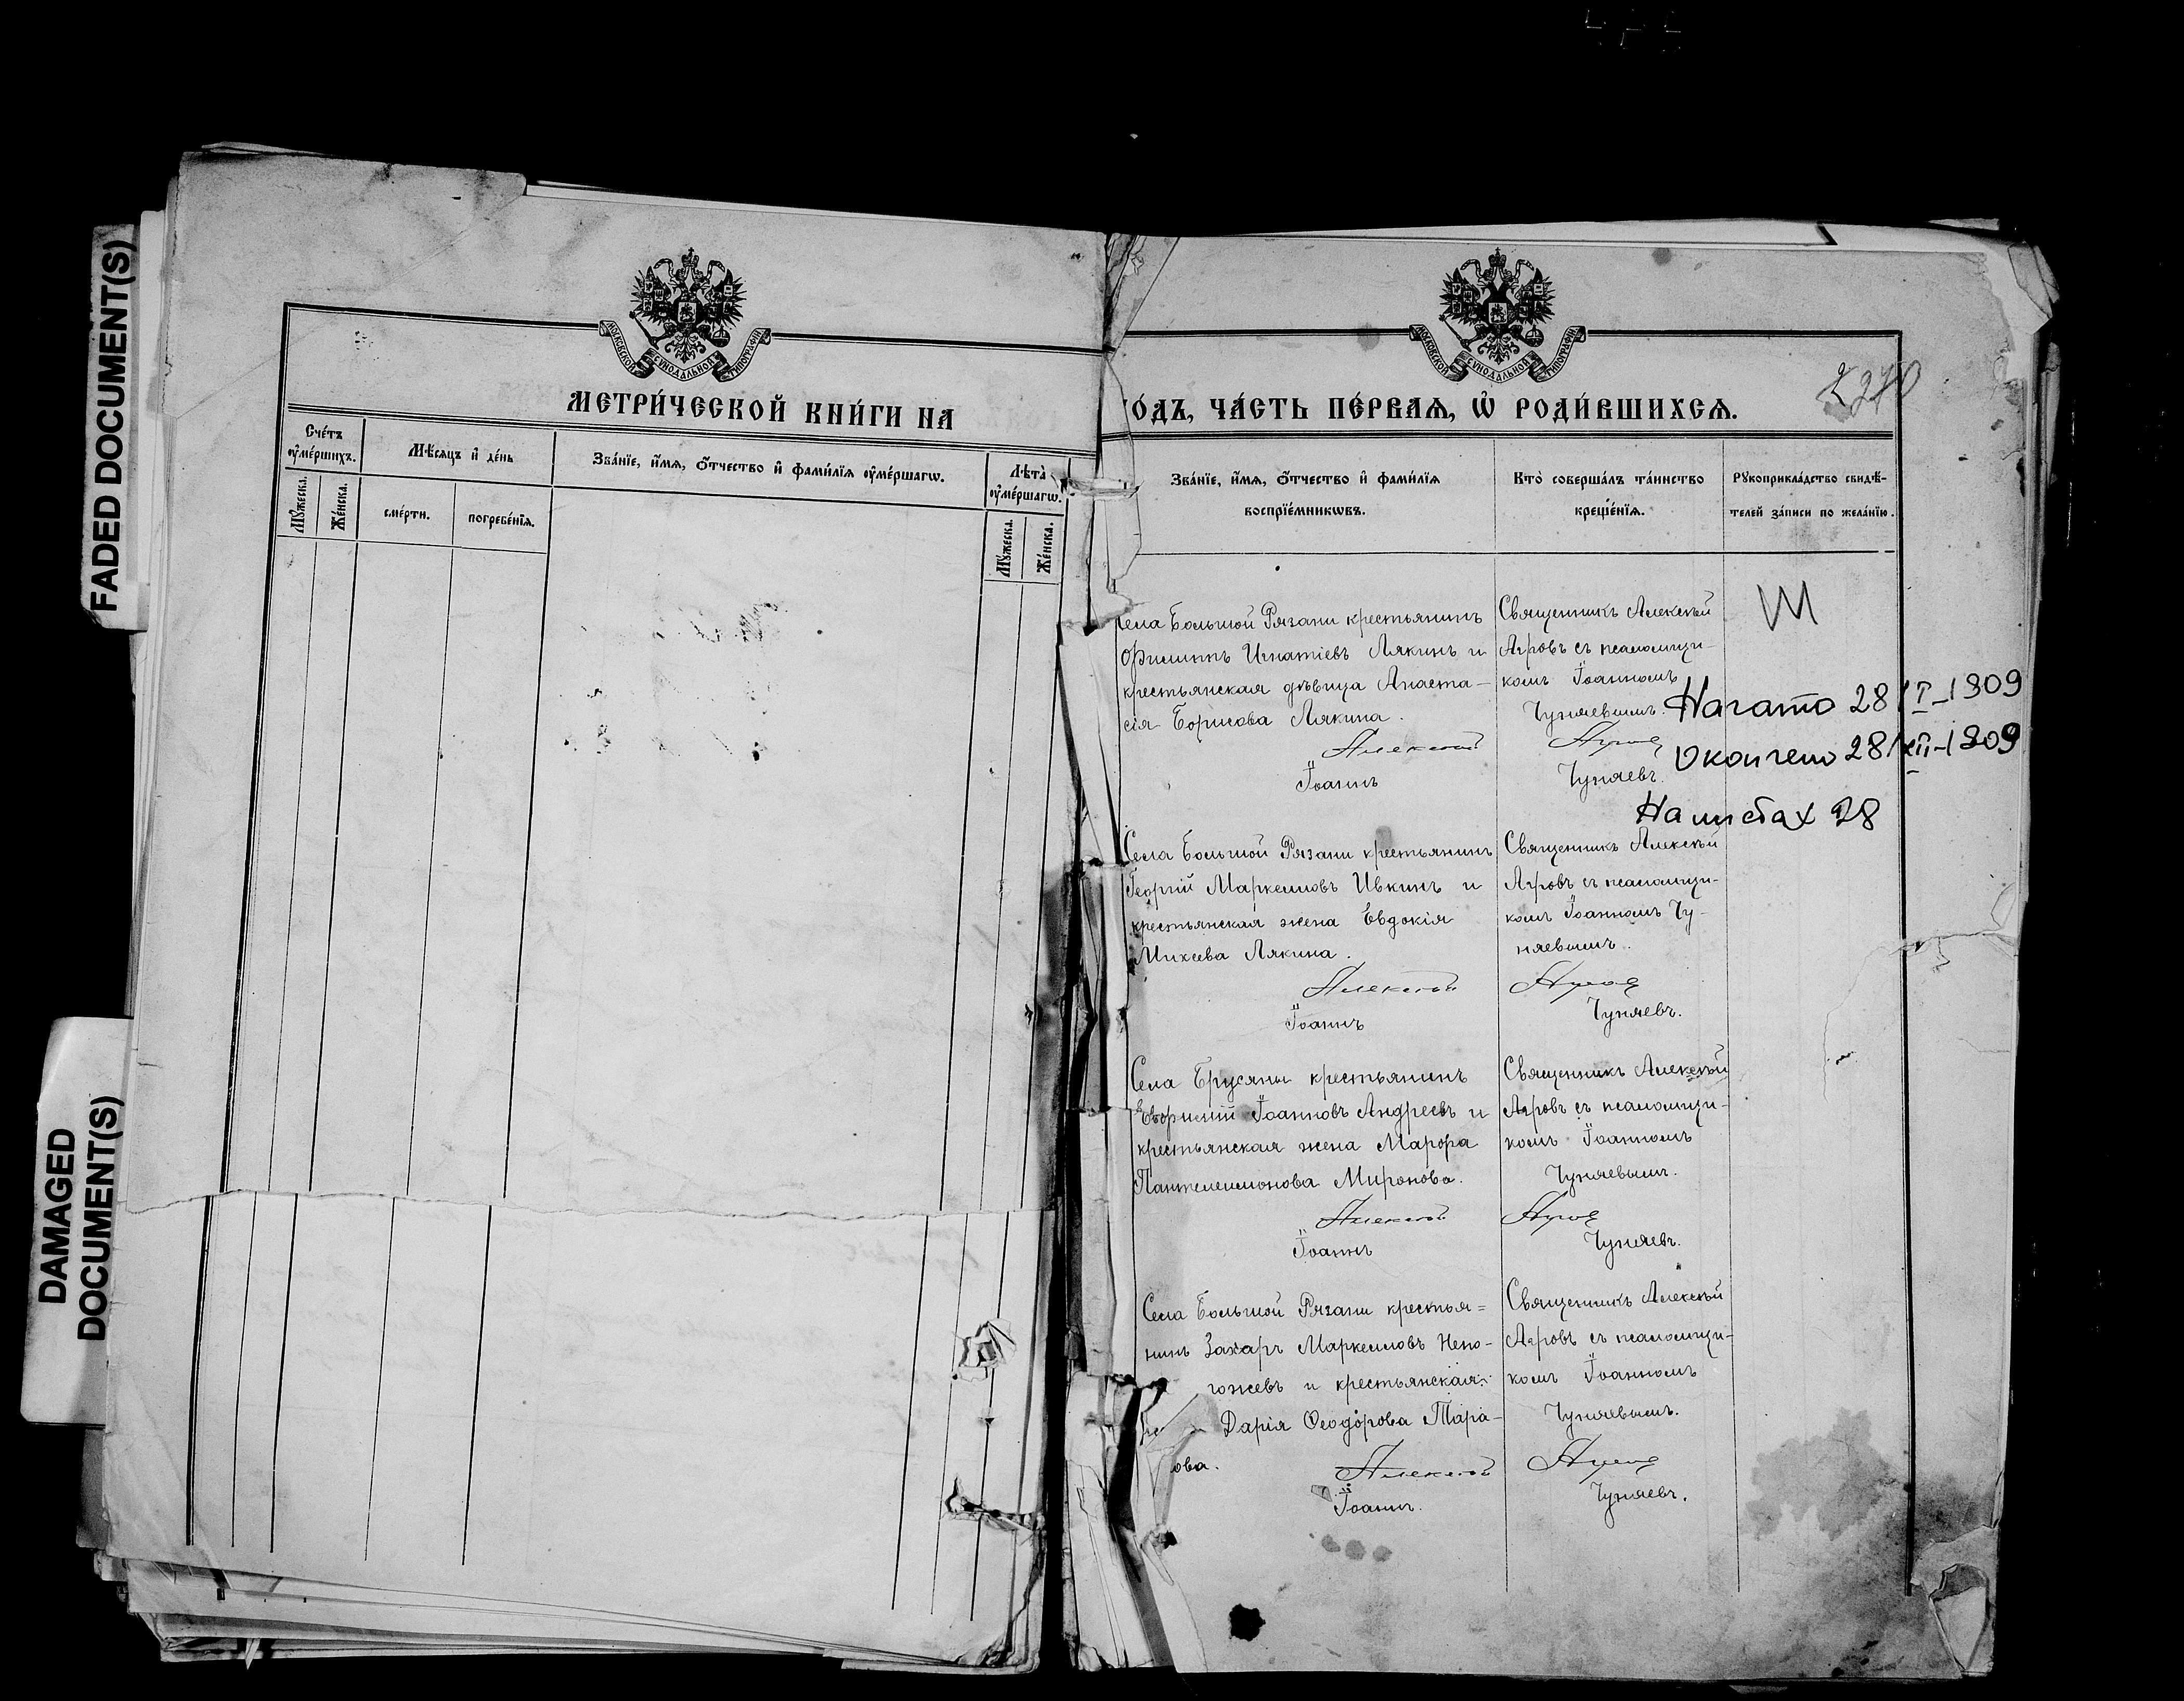 FADED DOCUMENT(S)
DAMAGED
DOCUMENT(S)
МОСКОВСКОЙ СѴНОДАЛЬНОЙ ТИПОГРАФІИ
МЕТРИ́ЧЕСКОЙ КНИ́ГИ НА
Сче́тъ
ᲂу҆ме́ршихъ.
Мѣ́сяцъ и҆ де́нь
Зва́нїе, и҆́мя, ѻ҆́тчество и҆ фами́лїя ᲂу҆ме́ршагѡ.
Лѣ́та
ᲂу҆ме́ршагѡ.
Мꙋ́жеска.
Же́нска.
сме́рти.
погребе́нїя.
Мꙋ́жеска.
Же́нска.
МОСКОВСКОЙ СѴНОДАЛЬНОЙ ТИПОГРАФІИ
ГО́ДЪ, ЧА́СТЬ ПЕ́РВАѦ, Ѡ҆ РОДИ́ВШИХСѦ.
Зва́нїе, и҆́мя, ѻ҆́тчество и҆ фами́лїя
воспрїе́мникѡвъ.
Кто̀ соверша́лъ та́инство
креще́нїя.
Рꙋкоприкла́дство свидѣ́-
телей за́писи по жела́нїю.
Села Большой Рязани крестьянинъ
Филиппъ Игнатіевъ Лякинъ и
крестьянская дѣвица Анаста-
сія Борисова Лякина.
Алексѣй
Іоаннъ
Священникъ Алексѣй
Агровъ съ псаломщи-
комъ Іоанномъ
Чуняевымъ.
Чуняевъ.
Начато 28/I-1909
Окончено 28/XII-1909
На листах 28
Села Большой Рязани крестьянинъ
Георгій Маркелловъ Ивкинъ и
крестьянская жена Евдокія
Михеева Лякина.
Алексѣй
Іоаннъ
Священникъ Алексѣй
Агровъ съ псаломщи-
комъ Іоанномъ Чу-
няевымъ.
Чуняевъ.
Села Брусяны крестьянинъ
Евфимій Іоанновъ Андреевъ и
крестьянская жена Марфа
Пантелеимонова Миронова.
Алексѣй
Іоаннъ
Священникъ Алексѣй
Агровъ съ псаломщи-
комъ Іоанномъ
Чуняевымъ.
Чуняевъ.
Села Большой Рязани крестья=
нинъ Захаръ Маркелловъ Непо-
гожевъ и крестьянская
Дарія Ѳеодорова Тара-
ова.
Алексѣй
Іоаннъ.
Священникъ Алексѣй
Агровъ съ псаломщи-
комъ Іоанномъ
Чуняевымъ.
Чуняевъ.